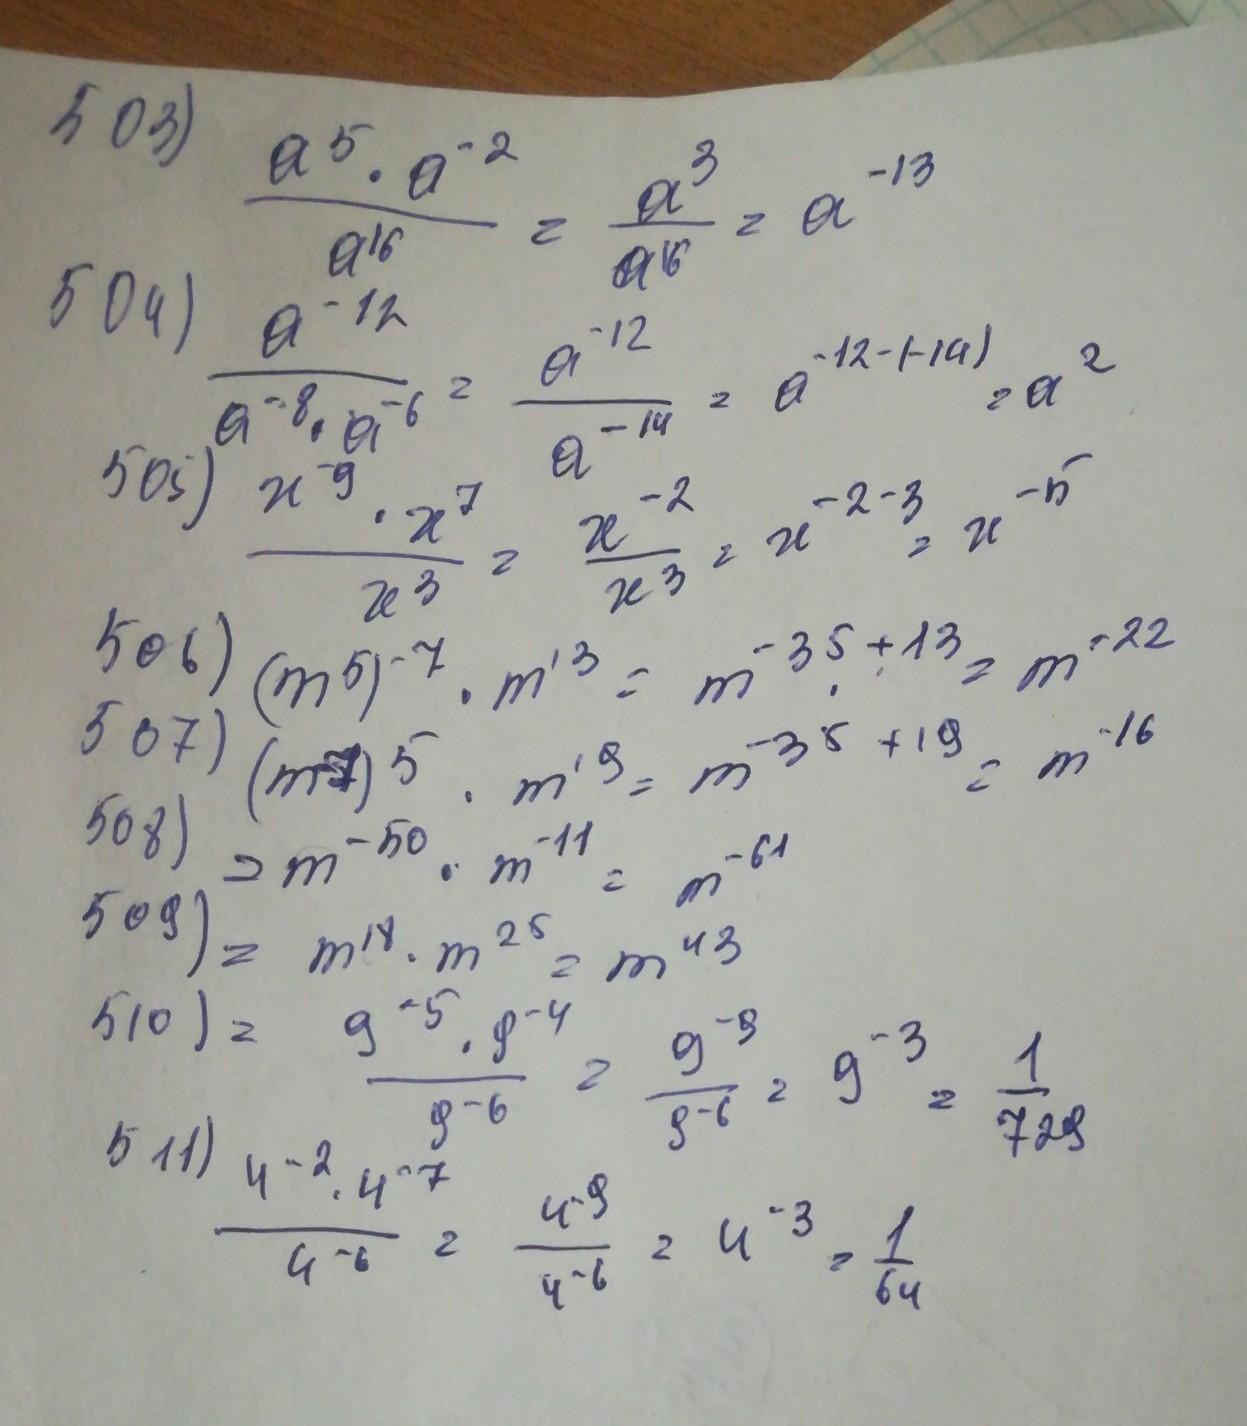 503) (a^5 · a^-2)/a^16 = a^3/a^16 = a^-13
504) a^-12/(a^-8 · a^-6) = a^-12/a^-14 = a^-12-(-14) = a^2
505) (x^-9 · x^7)/x^3 = x^-2/x^3 = x^-2-3 = x^-5
506) (m^5)^-7 · m^13 = m^-35+13 = m^-22
507) (m^-7)^5 · m^19 = m^-35+19 = m^-16
508) = m^-50 · m^-11 = m^-61
509) = m^18 · m^25 = m^43
510) = (9^-5 · 9^-4)/9^-6 = 9^-9/9^-6 = 9^-3 = 1/729
511) (4^-2 · 4^-7)/4^-6 = 4^-9/4^-6 = 4^-3 = 1/64